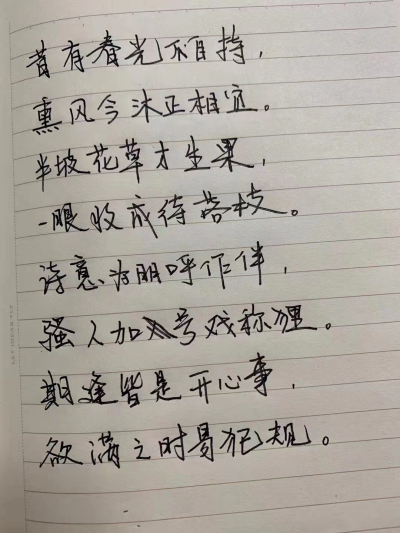 昔有春光不自持，
熏风今沐正相宜。
半坡花草才生果，
一眼收成待落枝。
诗意为朋呼作伴，
骚人加号戏称狸。
期逢皆是开心事，
欲满之时易犯规。